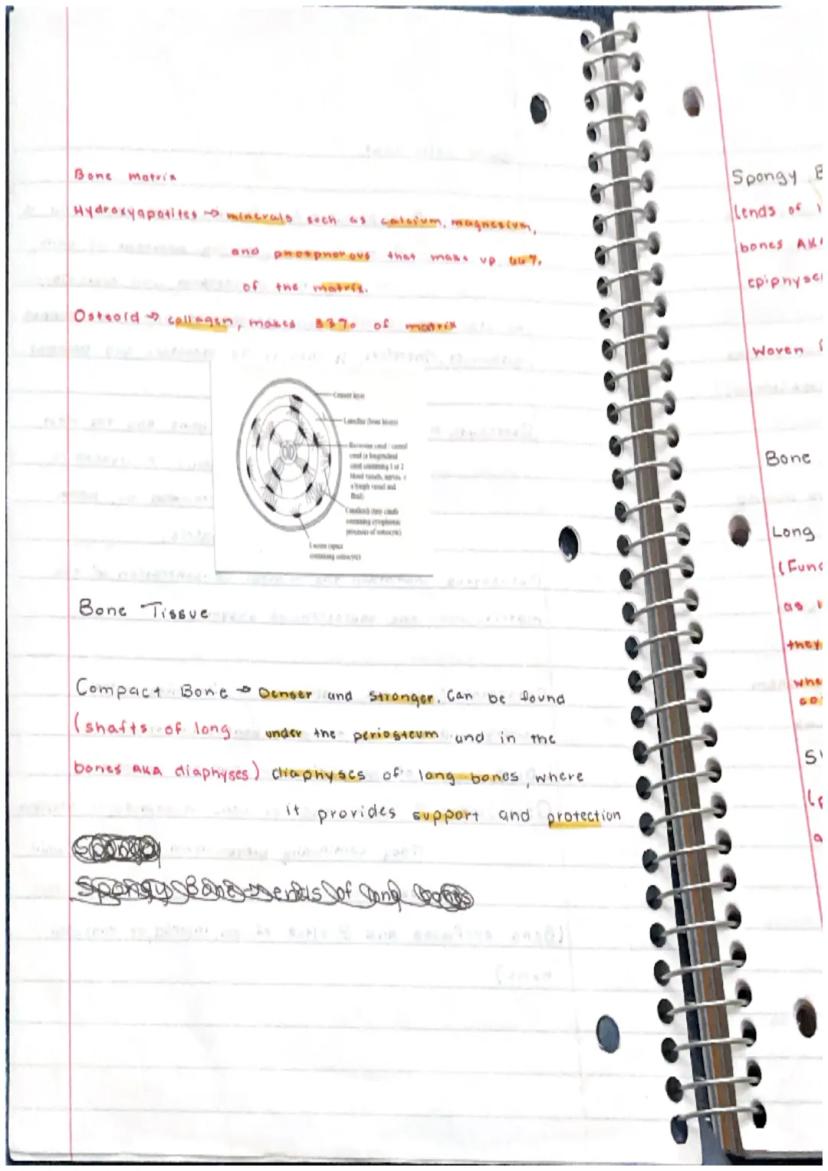 Bone matrix
Hydroxyapatites → minerals such as calcium, magnesium,
and phosphorous that make up
of the matrix.
Osteoid → collagen, makes 33% of matrix
Cement layer
Lamellae (bone layers)
Haversian canal / central
canal (a longitudinal
canal containing 1 or 2
blood vessels, nerves,
a lymph vessel and
fluid)
Canaliculi (tiny canals
containing cytoplasmic
processes of osteocytes)
Lacuna (space
containing osteocytes)
Bone Tissue
Compact Bone → Denser and stronger. Can be found
(shafts of long under the periosteum and in the
bones AKA diaphyses) diaphyses of long bones, where
it provides support and protection
Spongy Bone → ends of long bones
Spongy B
(ends of l
bones AKA
epiphyse
Woven
Bone
Long
(Func
as
they
whe